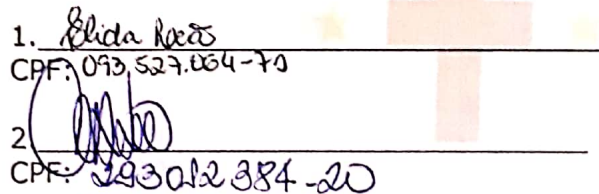 1. Elida
CPF: 093.527.064-70
2.
CPF: 293012384-20